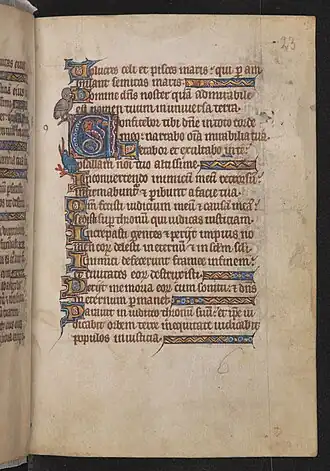 23
Volucres celi et pisces maris: qui pam
bulant semitas maris.
Domine dñs noster quã admirabile
est nomen tuum in universa terra.
Confitebor tibi dñe in toto corde
meo: narrabo oña mirabilia tua.
Letabor et exultabo in te:
psallam noĩ tuo altissime.
In convertendo inimicũ meũ retrorsũ:
infirmabunt᷑ ⁊ peribunt a facie tua.
Qm̃ fecisti iudicium meũ ⁊ causã meã:
sedisti sup thronũ qui iudicas iusticiam.
Increpasti gentes ⁊ periit impius no
men eoꝝ delesti in eternũ ⁊ in sclm̃ scłi
Inimici defecerunt framee in finem:
et civitates eoꝝ destruxisti.
Periit memoria eoꝝ cum sonitu: ⁊ dñs
in eternum pmanet.
Paravit in iudicio thronũ suũ: et ip̃e iu
dicabit orbem terre in equitate iudicabit
populos in iusticia.